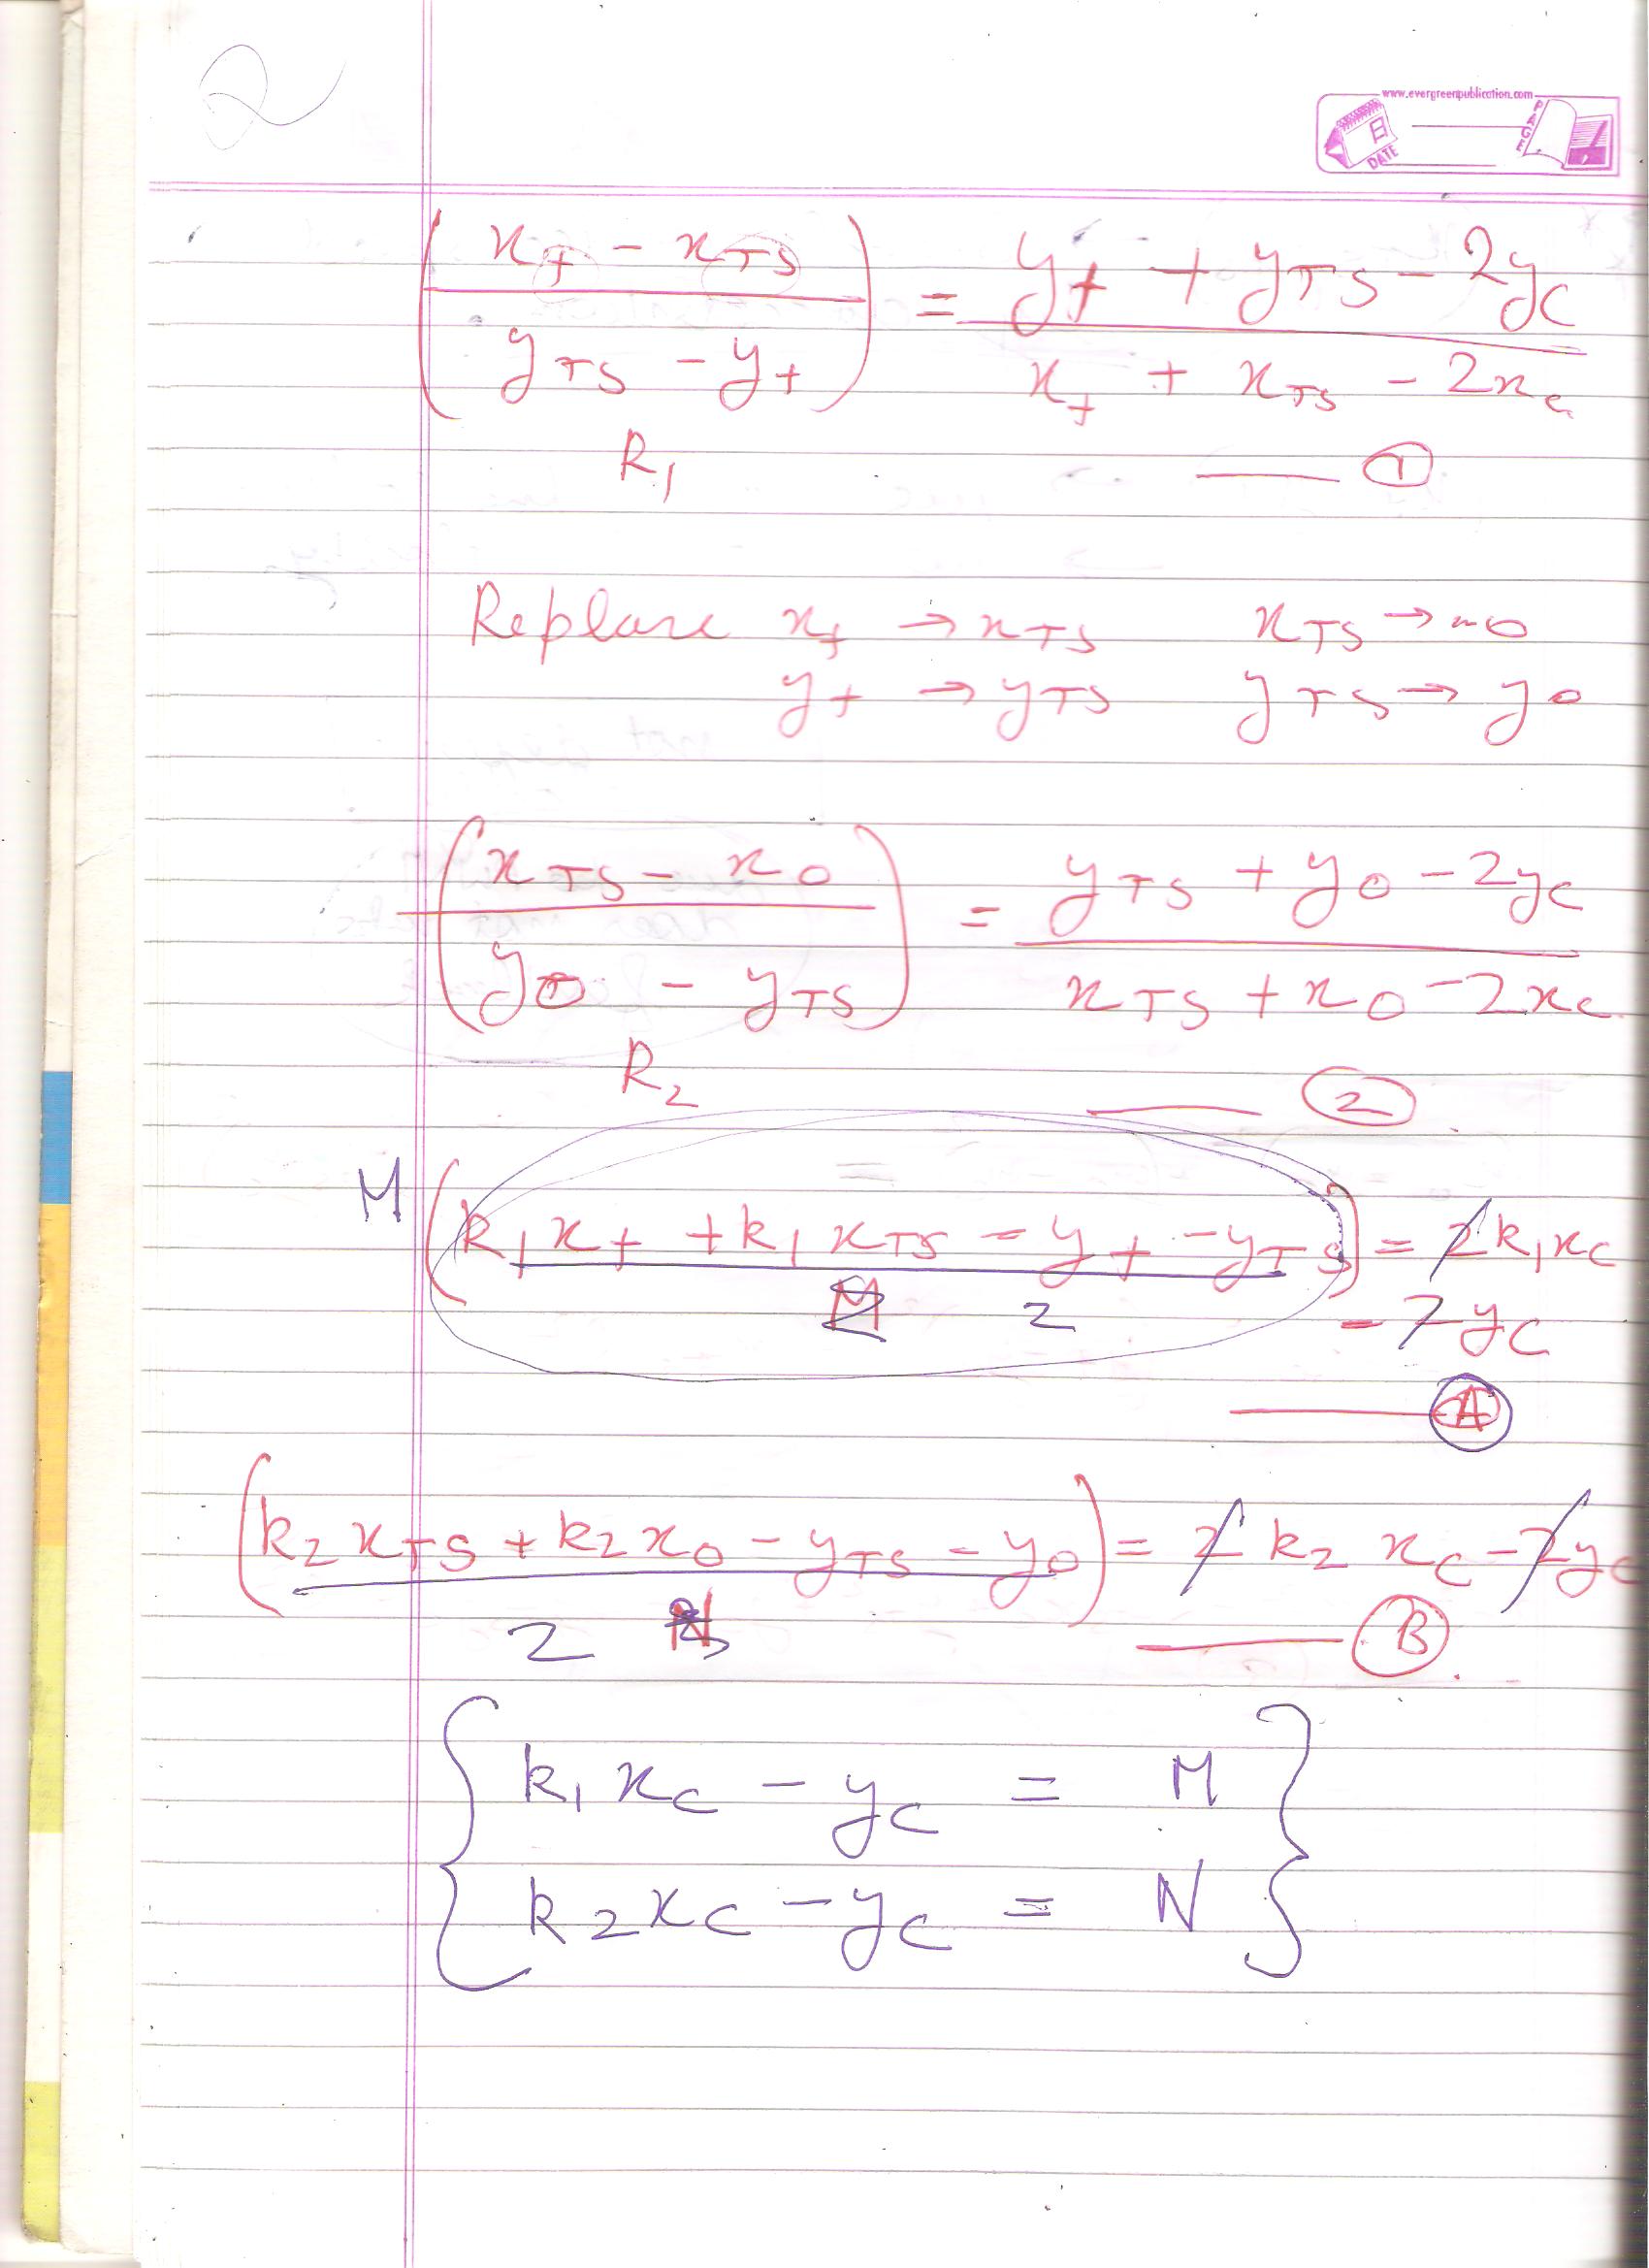 2
www.evergreenpublication.com
DATE PAGE
(x_t - x_TS) / (y_TS - y_t) = (y_t + y_TS - 2y_c) / (x_t + x_TS - 2x_c)
R_1 —— ①
Replace x_t → x_TS x_TS → x_0
y_t → y_TS y_TS → y_0
(x_TS - x_0) / (y_0 - y_TS) = (y_TS + y_0 - 2y_c) / (x_TS + x_0 - 2x_c)
R_2
—— ②
M (k_1 x_t + k_1 x_TS - y_t - y_TS) / 2 = 2k_1 x_c
- 2y_c
—— Ⓐ
(k_2 x_TS + k_2 x_0 - y_TS - y_0) / 2 = 2 k_2 x_c - 2y_c
N —— Ⓑ
{ k_1 x_c - y_c = M }
{ k_2 x_c - y_c = N }